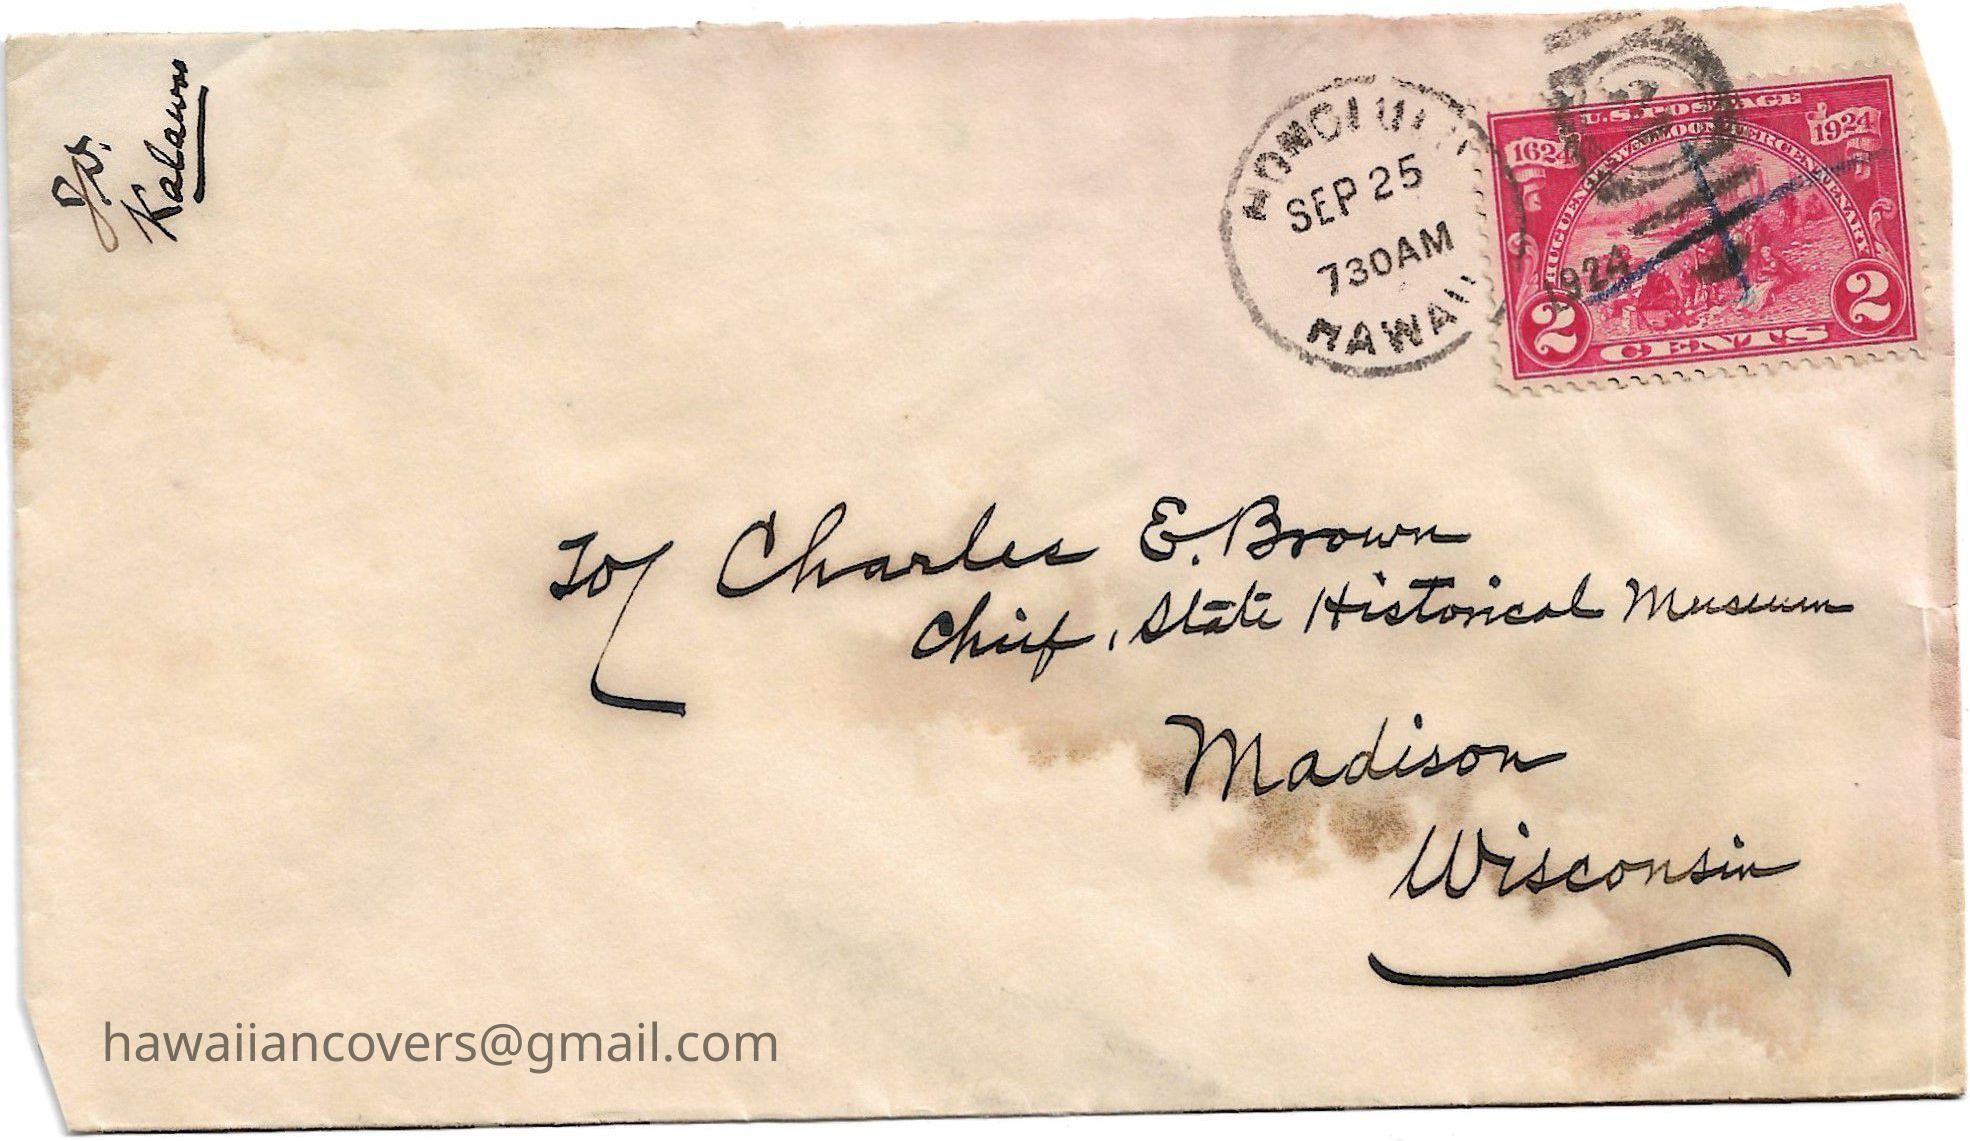 Kalawao
HONOLULU
SEP 25
730AM
HAWAII
1924
U.S. POSTAGE
1624 1924
HUGUENOT-WALLOON TERCENTENARY
2 2
CENTS
To Charles E. Brown
Chief, State Historical Museum
Madison
Wisconsin
hawaiiancovers@gmail.com